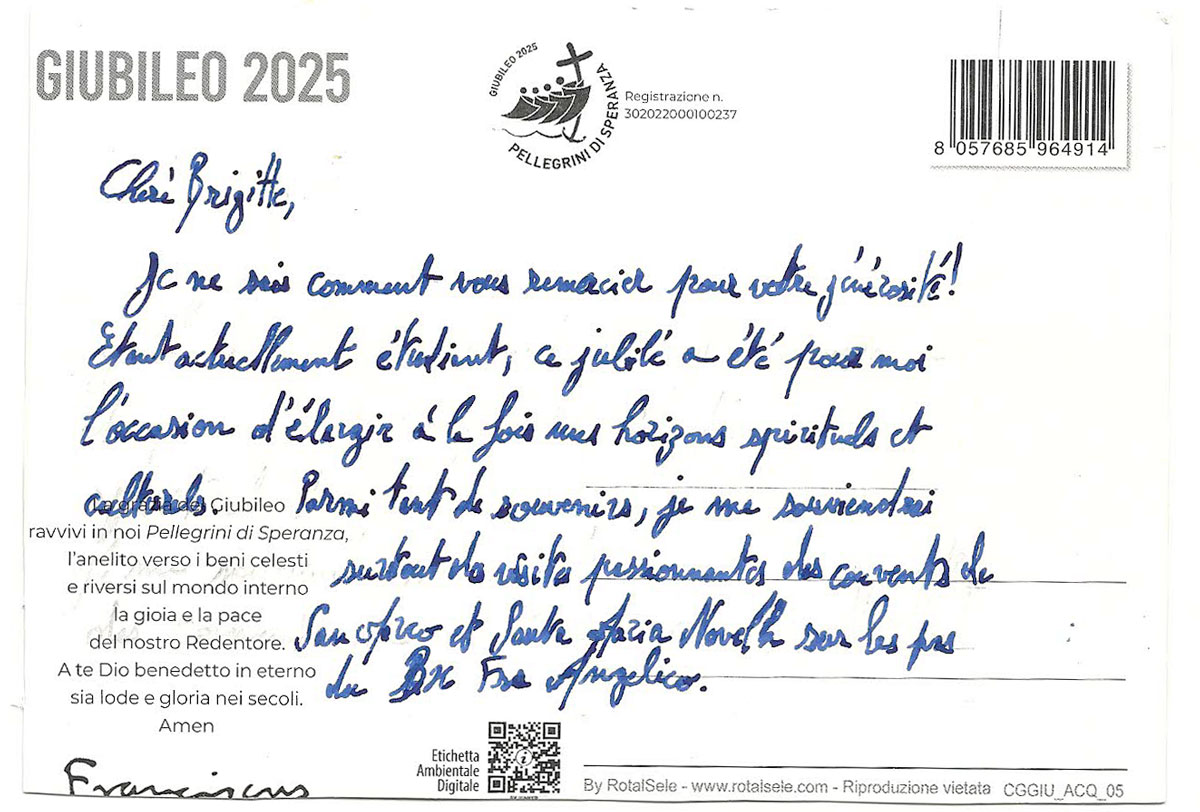 GIUBILEO 2025
GIUBILEO 2025
PELLEGRINI DI SPERANZA
Registrazione n.
302022000100237
8 057685 964914
Cherè Brigitte,
Je ne sais comment vous remercier pour votre jénérosité!
Etant actuellement étudiant, ce jubilé a été pour moi
l'occasion d'élargir à la fois mes horizons spirituels et
culturels. Parmi tant de souvenirs, je me souviendrai
surtout des visites passionnantes des couvents de
San Marco et Santa Maria Novella sur les pas
du Bx Fra Angelico.
La grazia del Giubileo
ravvivi in noi Pellegrini di Speranza,
l'anelito verso i beni celesti
e riversi sul mondo interno
la gioia e la pace
del nostro Redentore.
A te Dio benedetto in eterno
sia lode e gloria nei secoli.
Amen
Franciscus
Etichetta
Ambientale
Digitale
By RotalSele - www.rotalsele.com - Riproduzione vietata CGGIU_ACQ_05